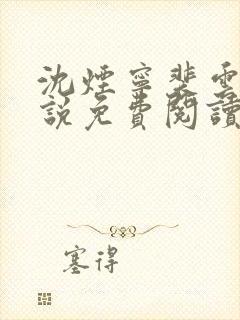 沈煙寧裴雲
說免費閱讀
塞得